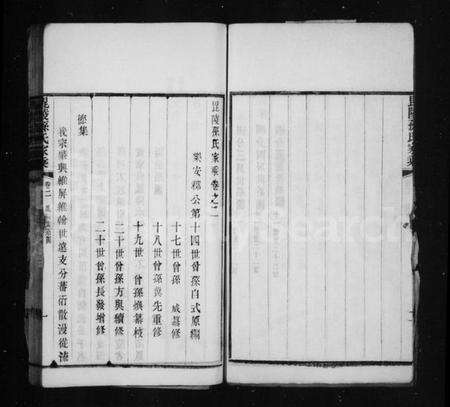 毘陵孫氏家乘
毘陵孫氏家乘卷之二
樂安郡公第十四世曾孫自式原編
十七世曾孫 成基修
十八世曾孫 先重修
十九世 曾孫 枝
二十世曾孫方與續修
二十世曾孫長發增修
總集
我宗肇興維屏維翰世遠支分蕃衍散漫從
毘陵孫氏家乘
卷二